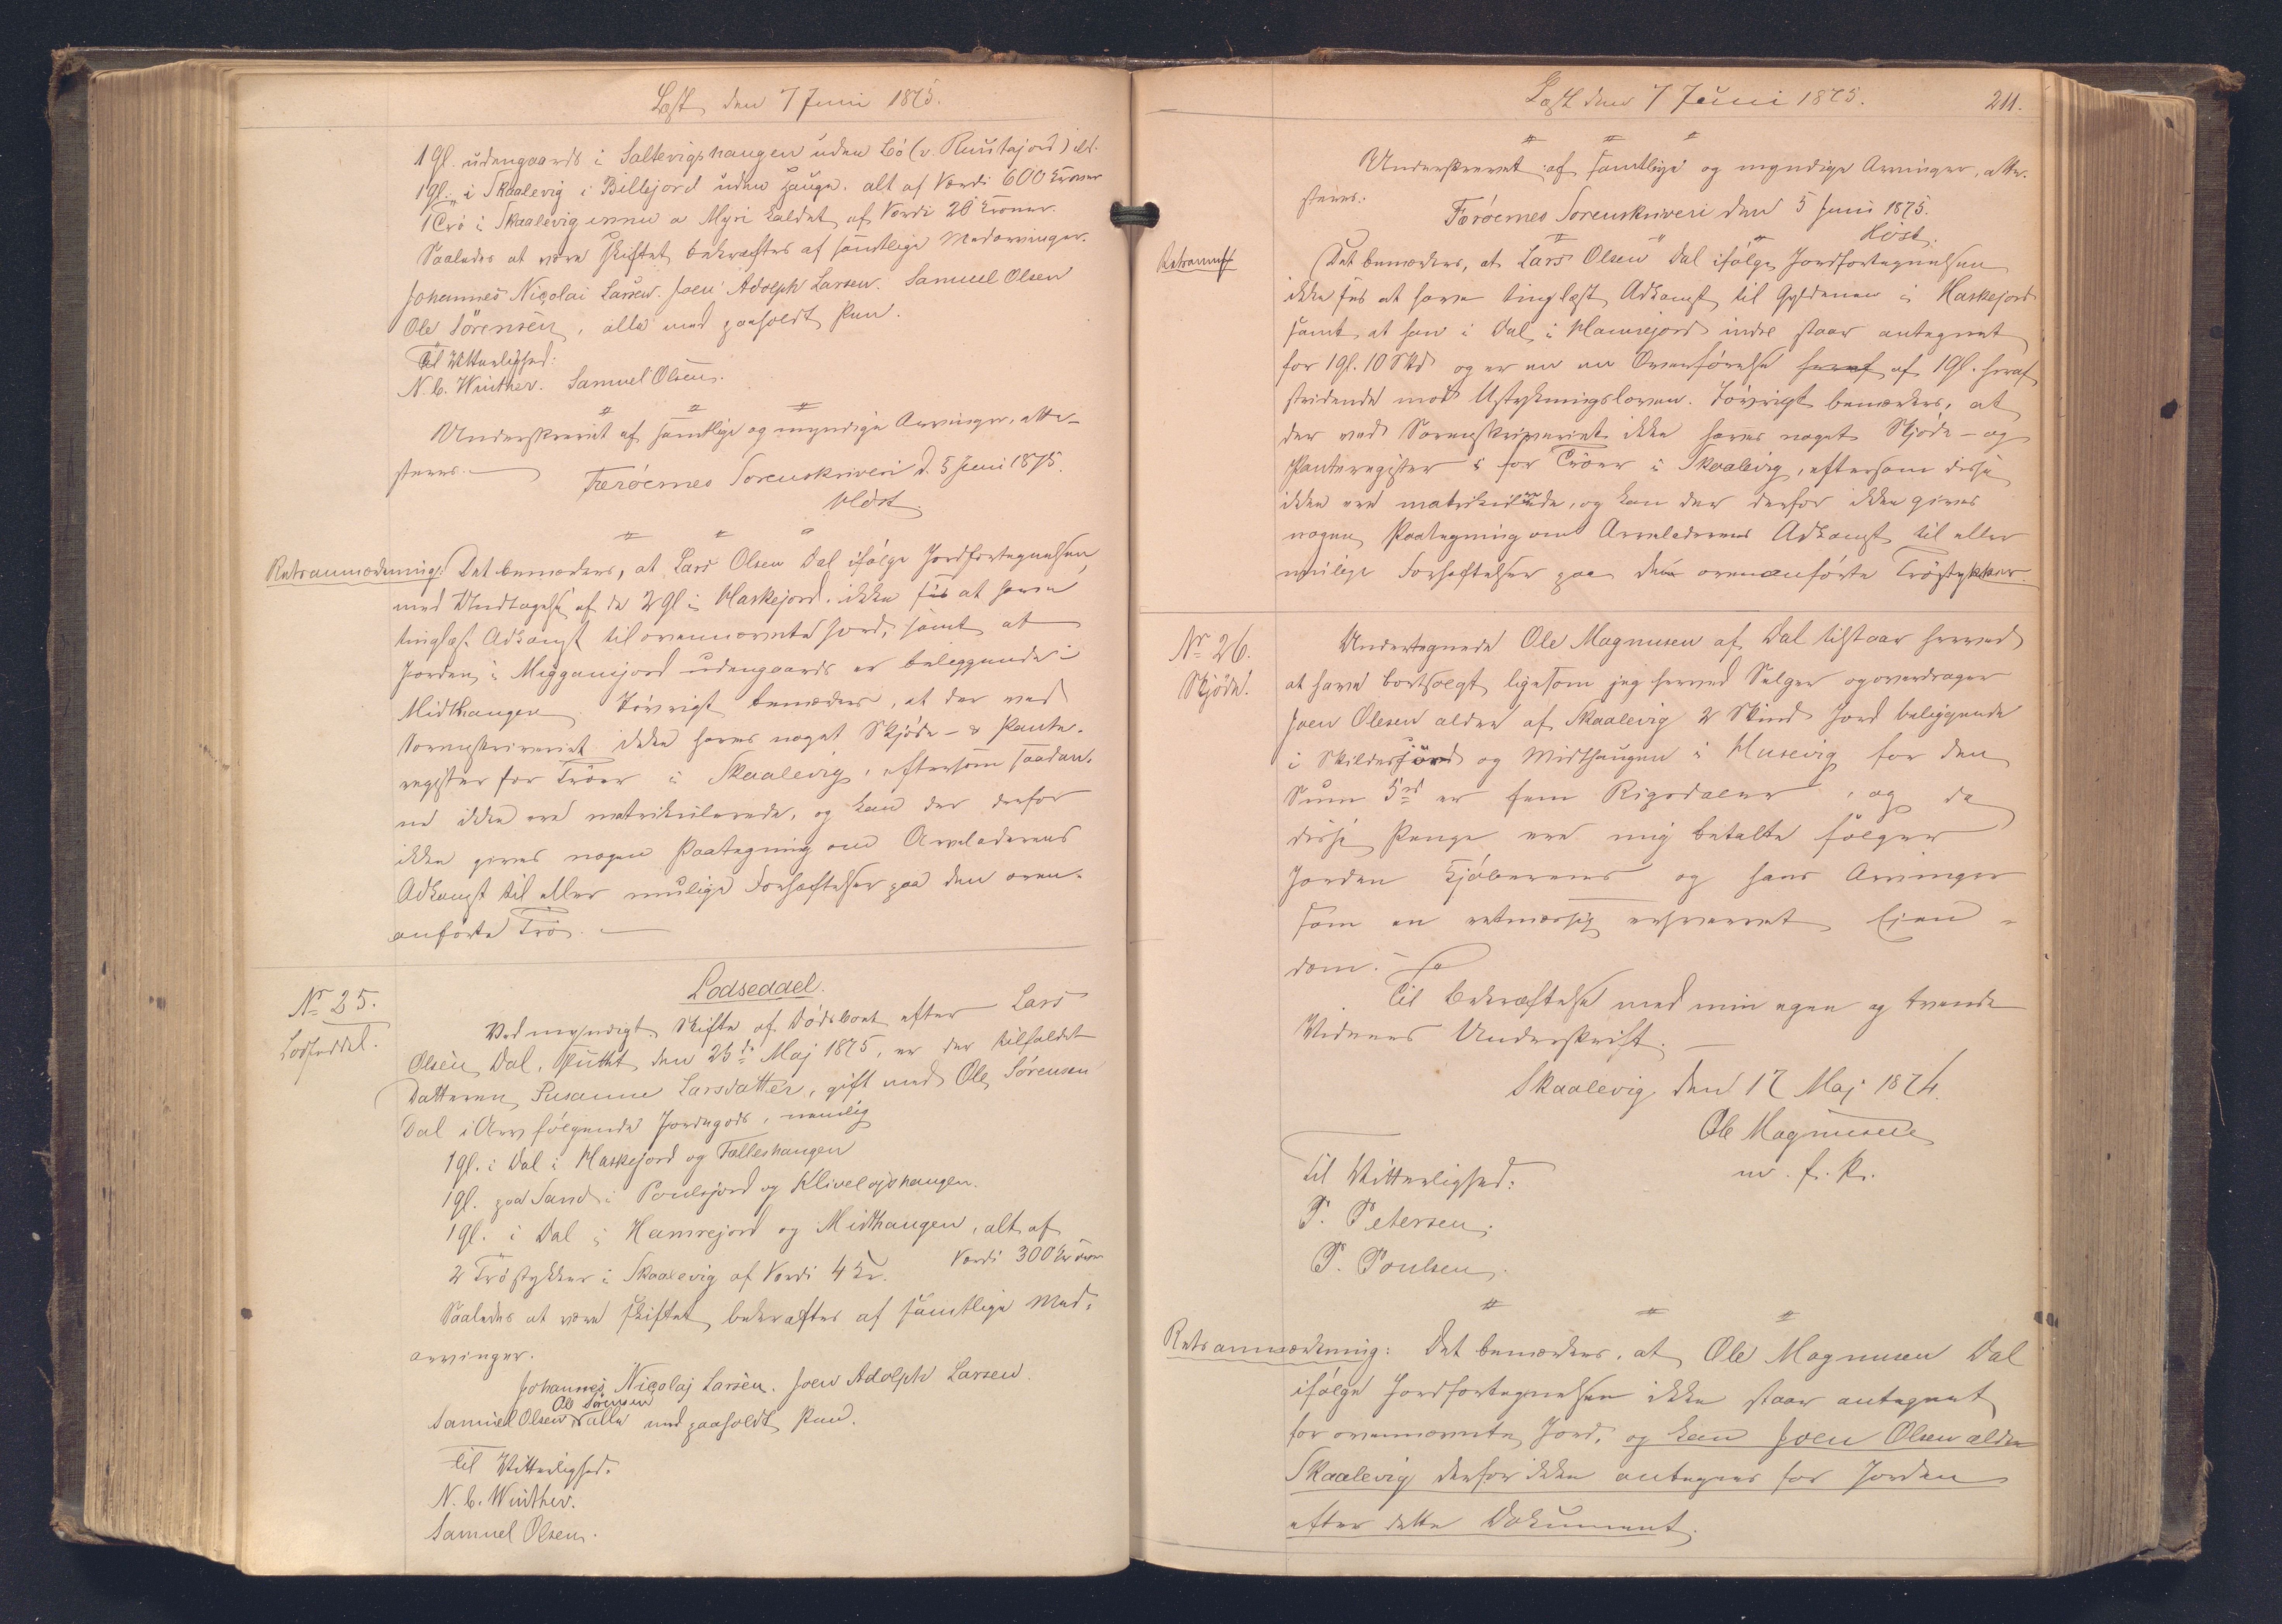 Læst den 7 Juni 1875.
1 Gl. udengaards i Saltevigshaugen uden Bö (v. Ruustajord) ibd.
1 Gl. " i Skaalevig i Billejord uden Hauge. alt af Værdi 600 Kroner
1 Trö i Skaalevig innen a Myri kaldet af Værdi 20 Kroner.
Saaledes at være skiftet bekræftes af samtlige Medarvinger.
Johannes Nicolai Larsen. Joen Adolph Larsen. Samuel Olsen
Ole Sörensen, alle med paaholdt Pen.
Til Vitterlighed:
N. C. Winther. Samuel Olsen.
Underskrevet af samtlige og myndige Arvinger, atte-
steres.
Færöernes Sorenskriveri d. 5 Juni 1875.
Höst.
Retsanmærkning: Det bemærkes, at Lars Olsen Dal ifölge Jordfortegnelsen,
med Undtagelse af de 2 Gl i Haskejord. ikke sees at have
tinglæst Adkomst til ovennævnte Jord, samt at
Jorden i Miggansjord udengaards er beliggende i
Midthaugen. Iövrigt bemærkes, at der ved
Sorenskriveriet ikke haves noget Skjöde- & Pante-
register for Tröer i Skaalevig, eftersom saadan-
ne ikke ere matrikulerede, og kan der derfor
ikke gives nogen Paategning om Arveladerens
Adkomst til eller mulige Forhæftelser paa den oven-
anförte Trö.
Nr. 25.
Lodseddel.
Lodseddel.
Ved myndigt Skifte af Dödsboet efter Lars
Olsen Dal, sluttet den 25de Maj 1875, er der tilfaldet
Datteren Susanne Larsdatter, gift med Ole Sörensen
Dal i Arv fölgende Jordegods, nemlig
1 Gl. i Dal i Haskejord og Fælleshaugen
1 Gl. paa Sand i Poulsjord og Klivelojshaugen.
1 Gl. i Dal i Hamrejord og Midthaugen, alt af
Værdi 300 Kroner
2 Tröstykker i Skaalevig af Værdi 4 Kr.
Saaledes at være skiftet, bekræftes af samtlige Med-
arvinger.
Johannes Nicolaj Larsen. Joen Adolph Larsen.
Ole Sörensen
Samuel Olsen alle med paaholdt Pen.
Til Vitterlighed.
N. C. Winther.
Samuel Olsen.
Læst den 7 Juni 1875.
211.
Underskrevet af samtlige og myndige Arvinger, atte-
steres.
Færöernes Sorenskriveri den 5 Juni 1875.
Höst.
Retsanm:
Det bemærkes, at Lars Olsen Dal ifölge Jordfortegnelsen
ikke sees at have tinglæst Adkomst til Gyldenen i Haskejord
samt at han i Dal i Hamrejord indre staar antegnet
for 1 Gl. 10 Skd og er en en Overförelse heraf af 1 Gl. heraf
stridende mod Udstykningsloven. Iövrigt bemærkes, at
der ved Sorenskriveriet ikke haves noget Skjöde- og
Panteregister for Tröer i Skaalevig, eftersom disse
ikke ere matrikulerede, og kan der derfor ikke gives
nogen Paategning om Arveladerens Adkomst til eller
mulige Forhæftelser paa de ovenanförte Tröstykker.
Nr. 26.
Skjöde.
Undertegnede Ole Magnusen af Dal tilstaar herved
at have bortsolgt, ligesom jeg herved Sælger og overdrager
Joen Olesen ældre af Skaalevig 2 Skind Jord beliggende
i Skildersjord og Midthaugen i Husevig for den
Sum 5 rd er fem Rigsdaler, og da
disse Penge ere mig betalte fölger
Jorden Kjöberens og hans Arvinger
som en retmæssig erhvervet Eien-
dom.
Til Bekræftelse med min egen og tvende
Vidners Underskrift.
Skaalevig den 17 Maj 1874.
Ole Magnusen
m. f. P.
Til Vitterlighed:
P. Petersen.
P. Poulsen.
Retsanmærkning: Det bemærkes, at Ole Magnusen Dal
ifölge Jordfortegnelsen ikke staar antegnet
for ovennævnte Jord, og kan Joen Olsen ældre
Skaalevig derfor ikke antegnes for Jorden
efter dette Dokument.